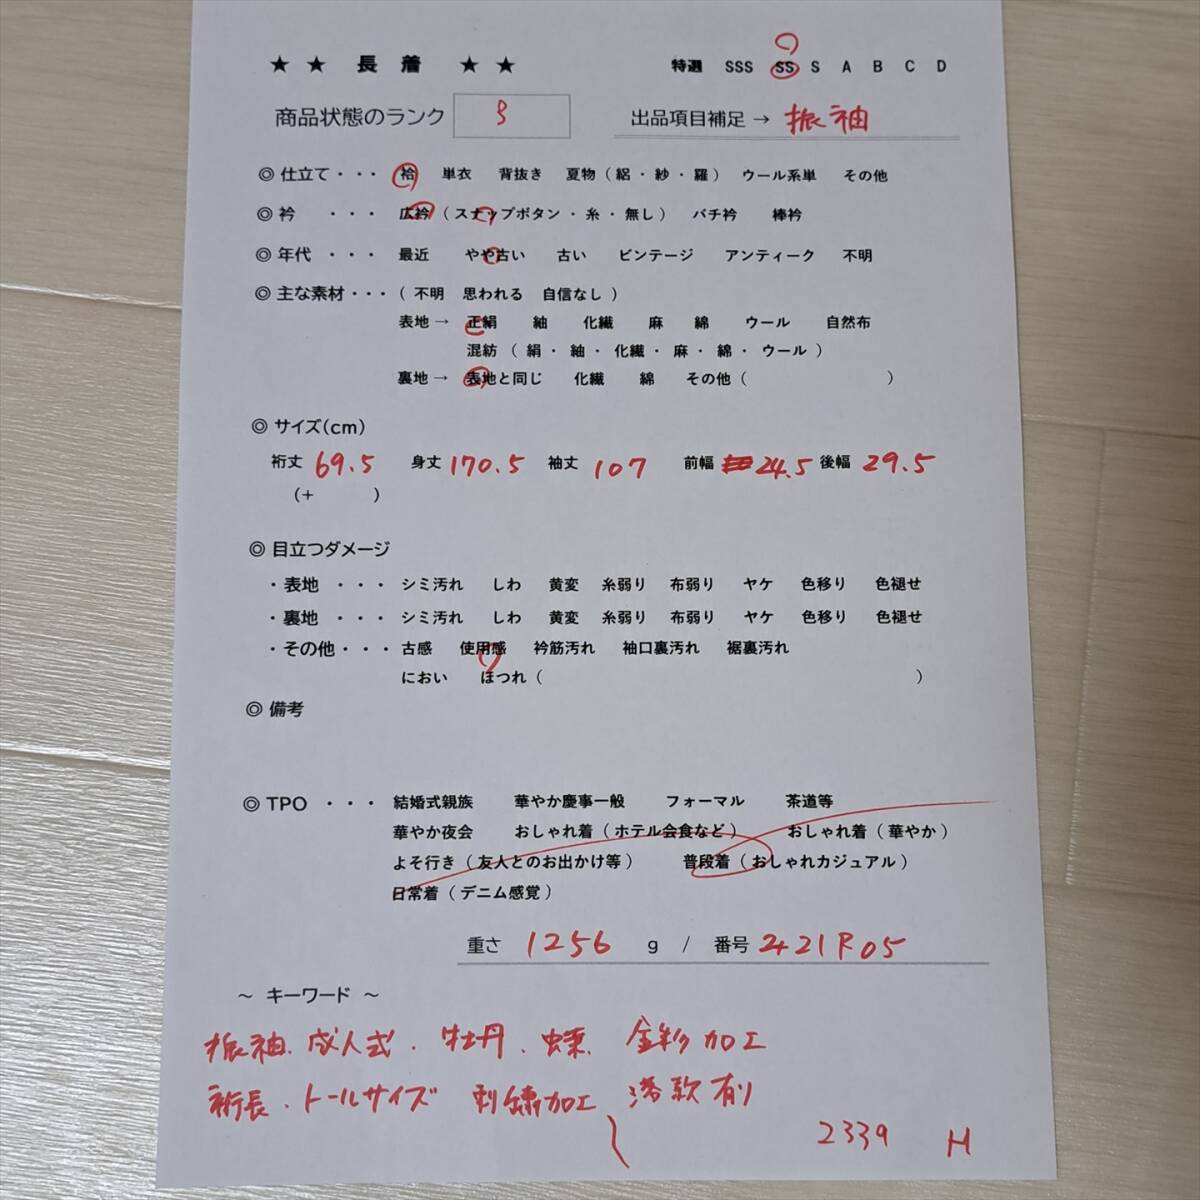 ★ ★ 長 着 ★ ★ 特選 SSS SS S A B C D
商品状態のランク 3 出品項目補足 → 振袖
◎ 仕立て・・・ 袷 単衣 背抜き 夏物 ( 絽 ・ 紗 ・ 羅 ) ウール系単 その他
◎ 衿 ・・・ 広衿 ( スナップボタン ・ 糸 ・ 無し ) バチ衿 棒衿
◎ 年代 ・・・ 最近 やや古い 古い ビンテージ アンティーク 不明
◎ 主な素材・・・ ( 不明 思われる 自信なし )
表地 → 正絹 紬 化繊 麻 綿 ウール 自然布
混紡 ( 絹 ・ 紬 ・ 化繊 ・ 麻 ・ 綿 ・ ウール )
裏地 → 表地と同じ 化繊 綿 その他 ( )
◎ サイズ(cm)
裄丈 69.5 身丈 170.5 袖丈 107 前幅 24.5 後幅 29.5
(+ )
◎ 目立つダメージ
・表地 ・・・ シミ汚れ しわ 黄変 糸弱り 布弱り ヤケ 色移り 色褪せ
・裏地 ・・・ シミ汚れ しわ 黄変 糸弱り 布弱り ヤケ 色移り 色褪せ
・その他・・・ 古感 使用感 衿筋汚れ 袖口裏汚れ 裾裏汚れ
におい ほつれ ( )
◎ 備考
◎ TPO ・・・ 結婚式親族 華やか慶事一般 フォーマル 茶道等
華やか夜会 おしゃれ着 ( ホテル会食など ) おしゃれ着 ( 華やか )
よそ行き ( 友人とのお出かけ等 ) 普段着 ( おしゃれカジュアル )
日常着 ( デニム感覚 )
重さ 1256 g / 番号 2421P05
～ キーワード ～
振袖. 成人式. 牡丹. 蝶. 金彩加工
裄長. トールサイズ 刺繍加工 落款有り
2339 H